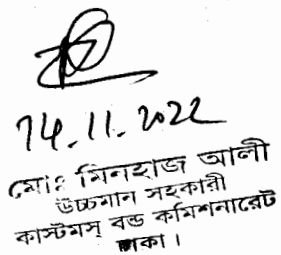 14.11.2022
মোঃ মিনহাজ আলী
উচ্চমান সহকারী
কাস্টমস্ বন্ড কমিশনারেট
ঢাকা।